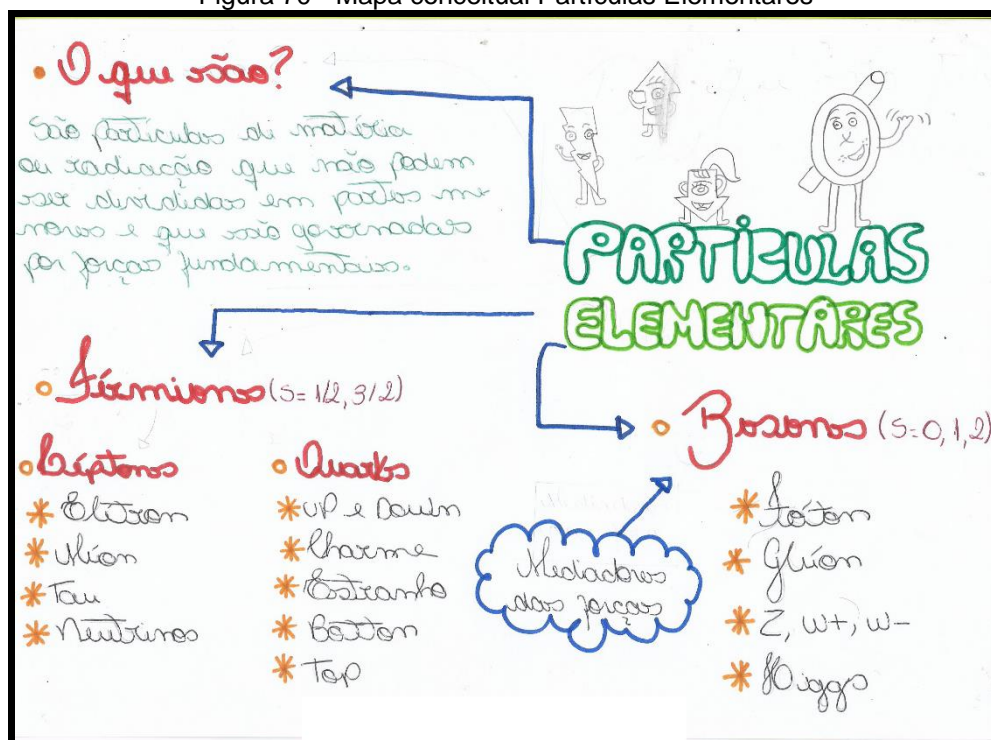 Figura 76 - Mapa conceitual Partículas Elementares
• O que são?
São partículas de matéria
ou radiação que não podem
ser divididas em partes me
nores e que são governadas
por forças fundamentais.
PARTÍCULAS
ELEMENTARES
Férmions (S= 1/2, 3/2)
Léptons
* Elétron
* Múon
* Tau
* Neutrinos
Quarks
* UP e Down
* Charme
* Estranho
* Botton
* Top
Mediadores
das forças
Bosons (S=0,1,2)
* Fóton
* Glúon
* Z, W+, W-
* Higgs